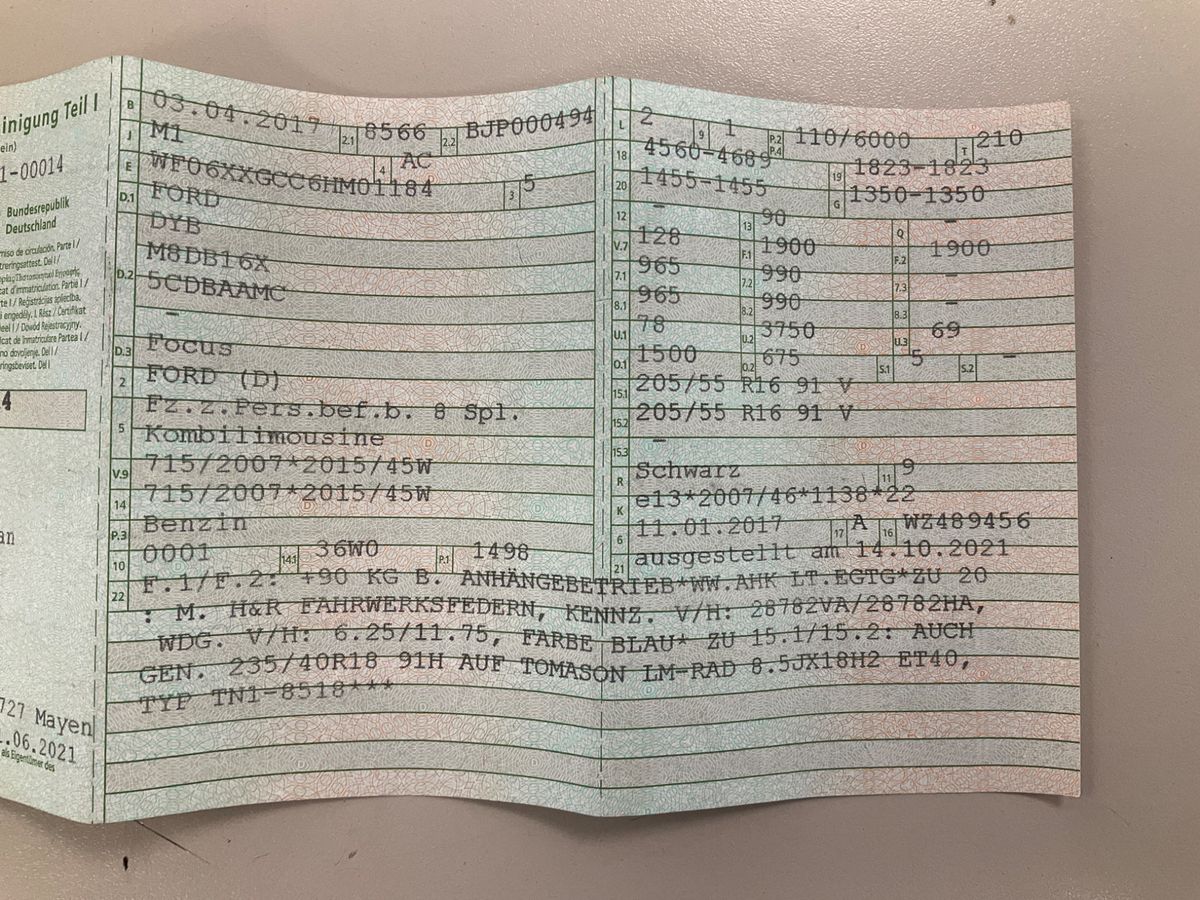 inigung Teil I
ein)
1-00014
Bundesrepublik
Deutschland
miso de circulación. Parte I /
treringsattest. Del I /
cat d'immatriculation. Partie I /
rte I / Reģistrācijas apliecība.
i engedély. I. Rész / Certifikat
eel I / Dowód Rejestracyjny.
icat de Inmatriculare Partea I /
no dovoljenje. Del I /
ringsbeviset. Del I
4
an
727 Mayen
.06.2021
als Eigentümer des
B 03.04.2017 2.1 8566 2.2 BJP000494
J M1 4 AC
E WF06XXGCC6HM01184 3 5
D.1 FORD
DYB
D.2 M8DB16X
5CDBAAMC
–
D.3 Focus
2 FORD (D)
5 Fz.z.Pers.bef.b. 8 Spl.
Kombilimousine
V.9 715/2007*2015/45W
14 715/2007*2015/45W
P.3 Benzin
10 0001 14.1 36W0 P.1 1498
L 2 9 1 P.2 P.4 110/6000 T 210
18 4560-4689 19 1823-1823
20 1455-1455 G 1350-1350
12 – 13 90 Q –
V.7 128 F.1 1900 F.2 1900
7.1 965 7.2 990 7.3 –
8.1 965 8.2 990 8.3 –
U.1 78 U.2 3750 U.3 69
O.1 1500 O.2 675 S.1 5 S.2 –
15.1 205/55 R16 91 V
15.2 205/55 R16 91 V
15.3 –
R Schwarz 11 9
K e13*2007/46*1138*22
6 11.01.2017 17 A 16 WZ489456
21 ausgestellt am 14.10.2021
22 F.1/F.2: +90 KG B. ANHÄNGEBETRIEB*WW.AHK LT.EGTG*ZU 20
: M. H&R FAHRWERKSFEDERN, KENNZ. V/H: 28782VA/28782HA,
WDG. V/H: 6.25/11.75, FARBE BLAU* ZU 15.1/15.2: AUCH
GEN. 235/40R18 91H AUF TOMASON LM-RAD 8.5JX18H2 ET40,
TYP TN1-8518***